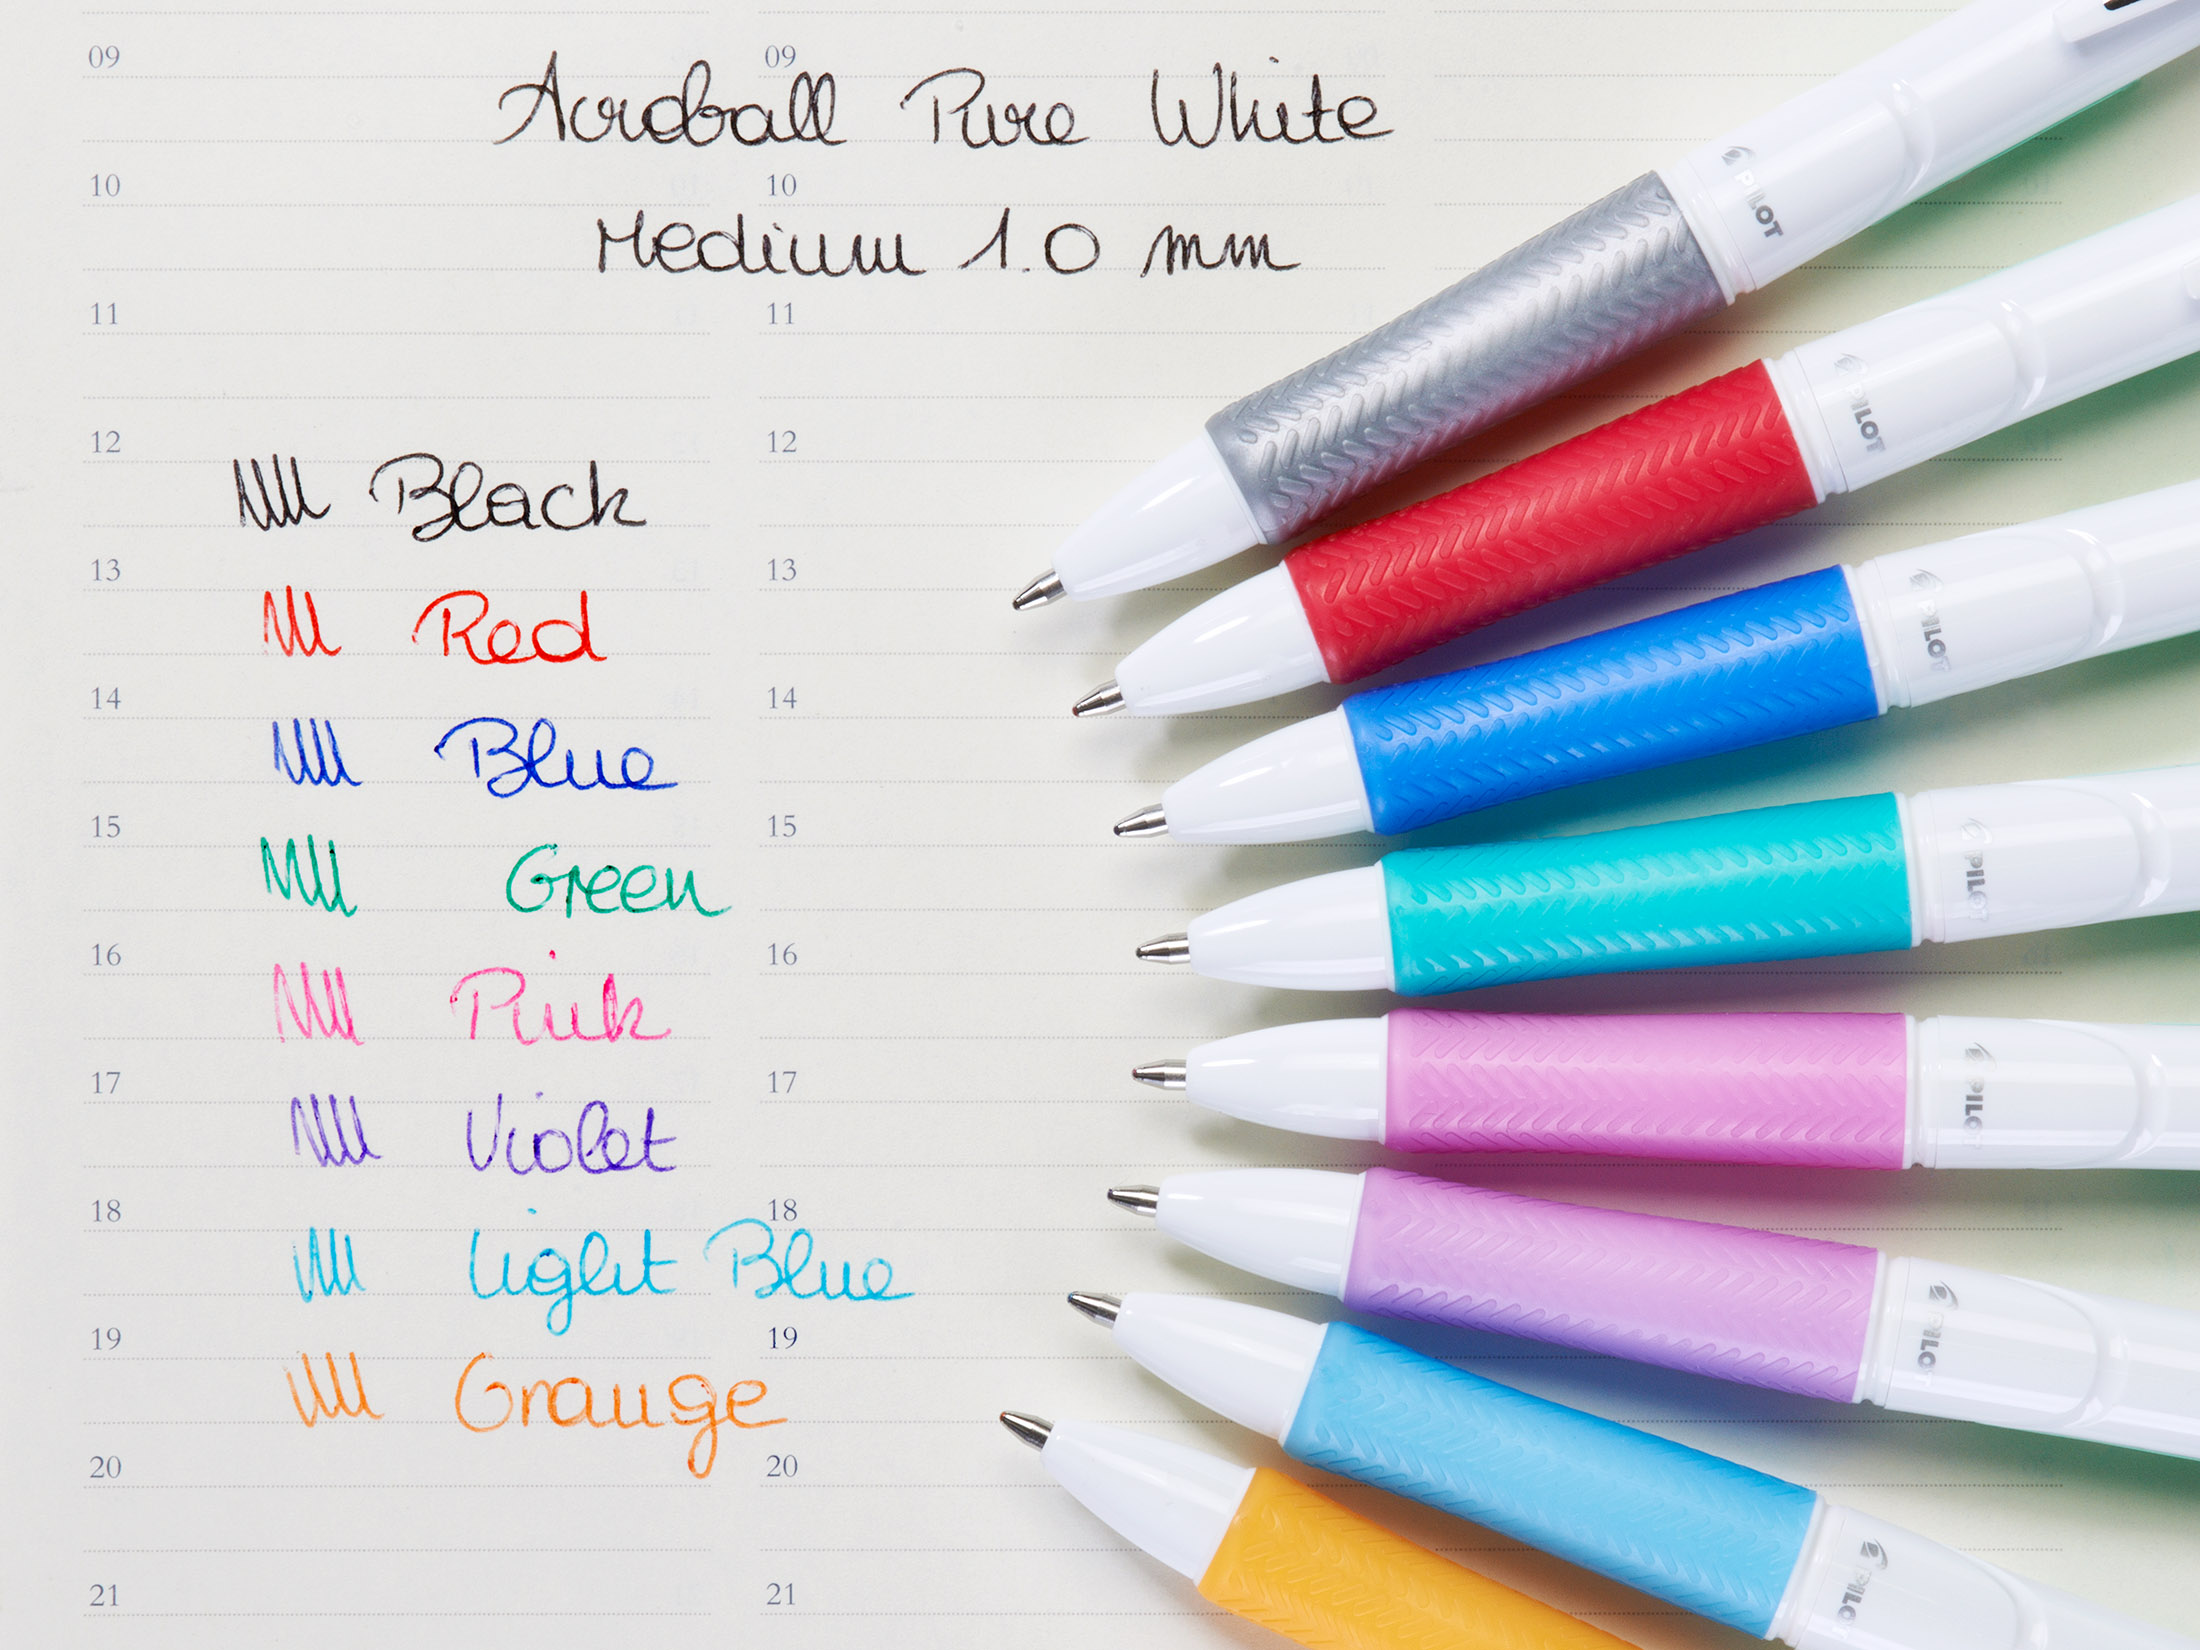 09 09
Acroball Pure White
10 10
Medium 1.0 mm
11 11
12 12
Black
13 13
Red
14 14
Blue
15 15
Green
16 16
Pink
17 17
Violet
18 18
Light Blue
19 19
Orange
20 20
21 21
PILOT
PILOT
PILOT
PILOT
PILOT
PILOT
PILOT